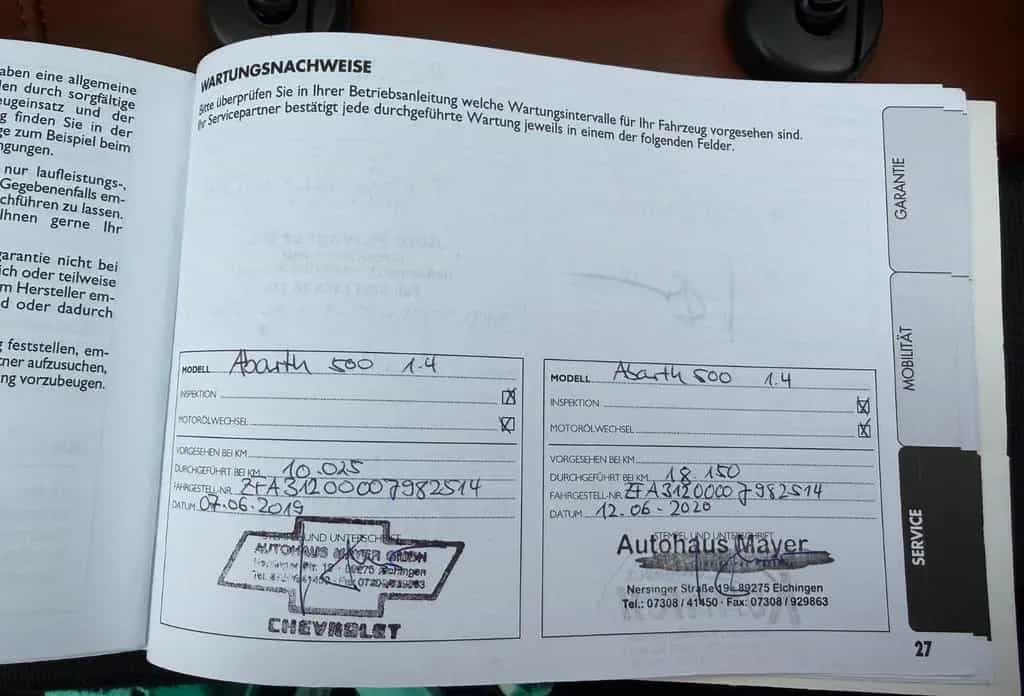 aben eine allgemeine
len durch sorgfältige
eugeinsatz und der
g finden Sie in der
ge zum Beispiel beim
ngungen.
nur laufleistungs-,
Gegebenenfalls em-
chführen zu lassen.
Ihnen gerne Ihr
garantie nicht bei
ich oder teilweise
m Hersteller em-
d oder dadurch
g feststellen, em-
tner aufzusuchen,
ng vorzubeugen.
WARTUNGSNACHWEISE
Bitte überprüfen Sie in Ihrer Betriebsanleitung welche Wartungsintervalle für Ihr Fahrzeug vorgesehen sind.
Ihr Servicepartner bestätigt jede durchgeführte Wartung jeweils in einem der folgenden Felder.
MODELL Abarth 500 1.4
INSPEKTION
MOTORÖLWECHSEL
VORGESEHEN BEI KM
DURCHGEFÜHRT BEI KM 10.025
FAHRGESTELL-NR. ZFA31200007982514
DATUM 07.06.2019
STEMPEL UND UNTERSCHRIFT
AUTOHAUS MAYER GMBH
Eichingen
CHEVROLET
MODELL Abarth 500 1.4
INSPEKTION
MOTORÖLWECHSEL
VORGESEHEN BEI KM
DURCHGEFÜHRT BEI KM 18.150
FAHRGESTELL-NR. ZFA31200007982514
DATUM 12.06-2020
STEMPEL UND UNTERSCHRIFT
Autohaus Mayer
Nersinger Straße 19 · 89275 Elchingen
Tel.: 07308 / 41450 · Fax: 07308 / 929863
GARANTIE
MOBILITÄT
SERVICE
27